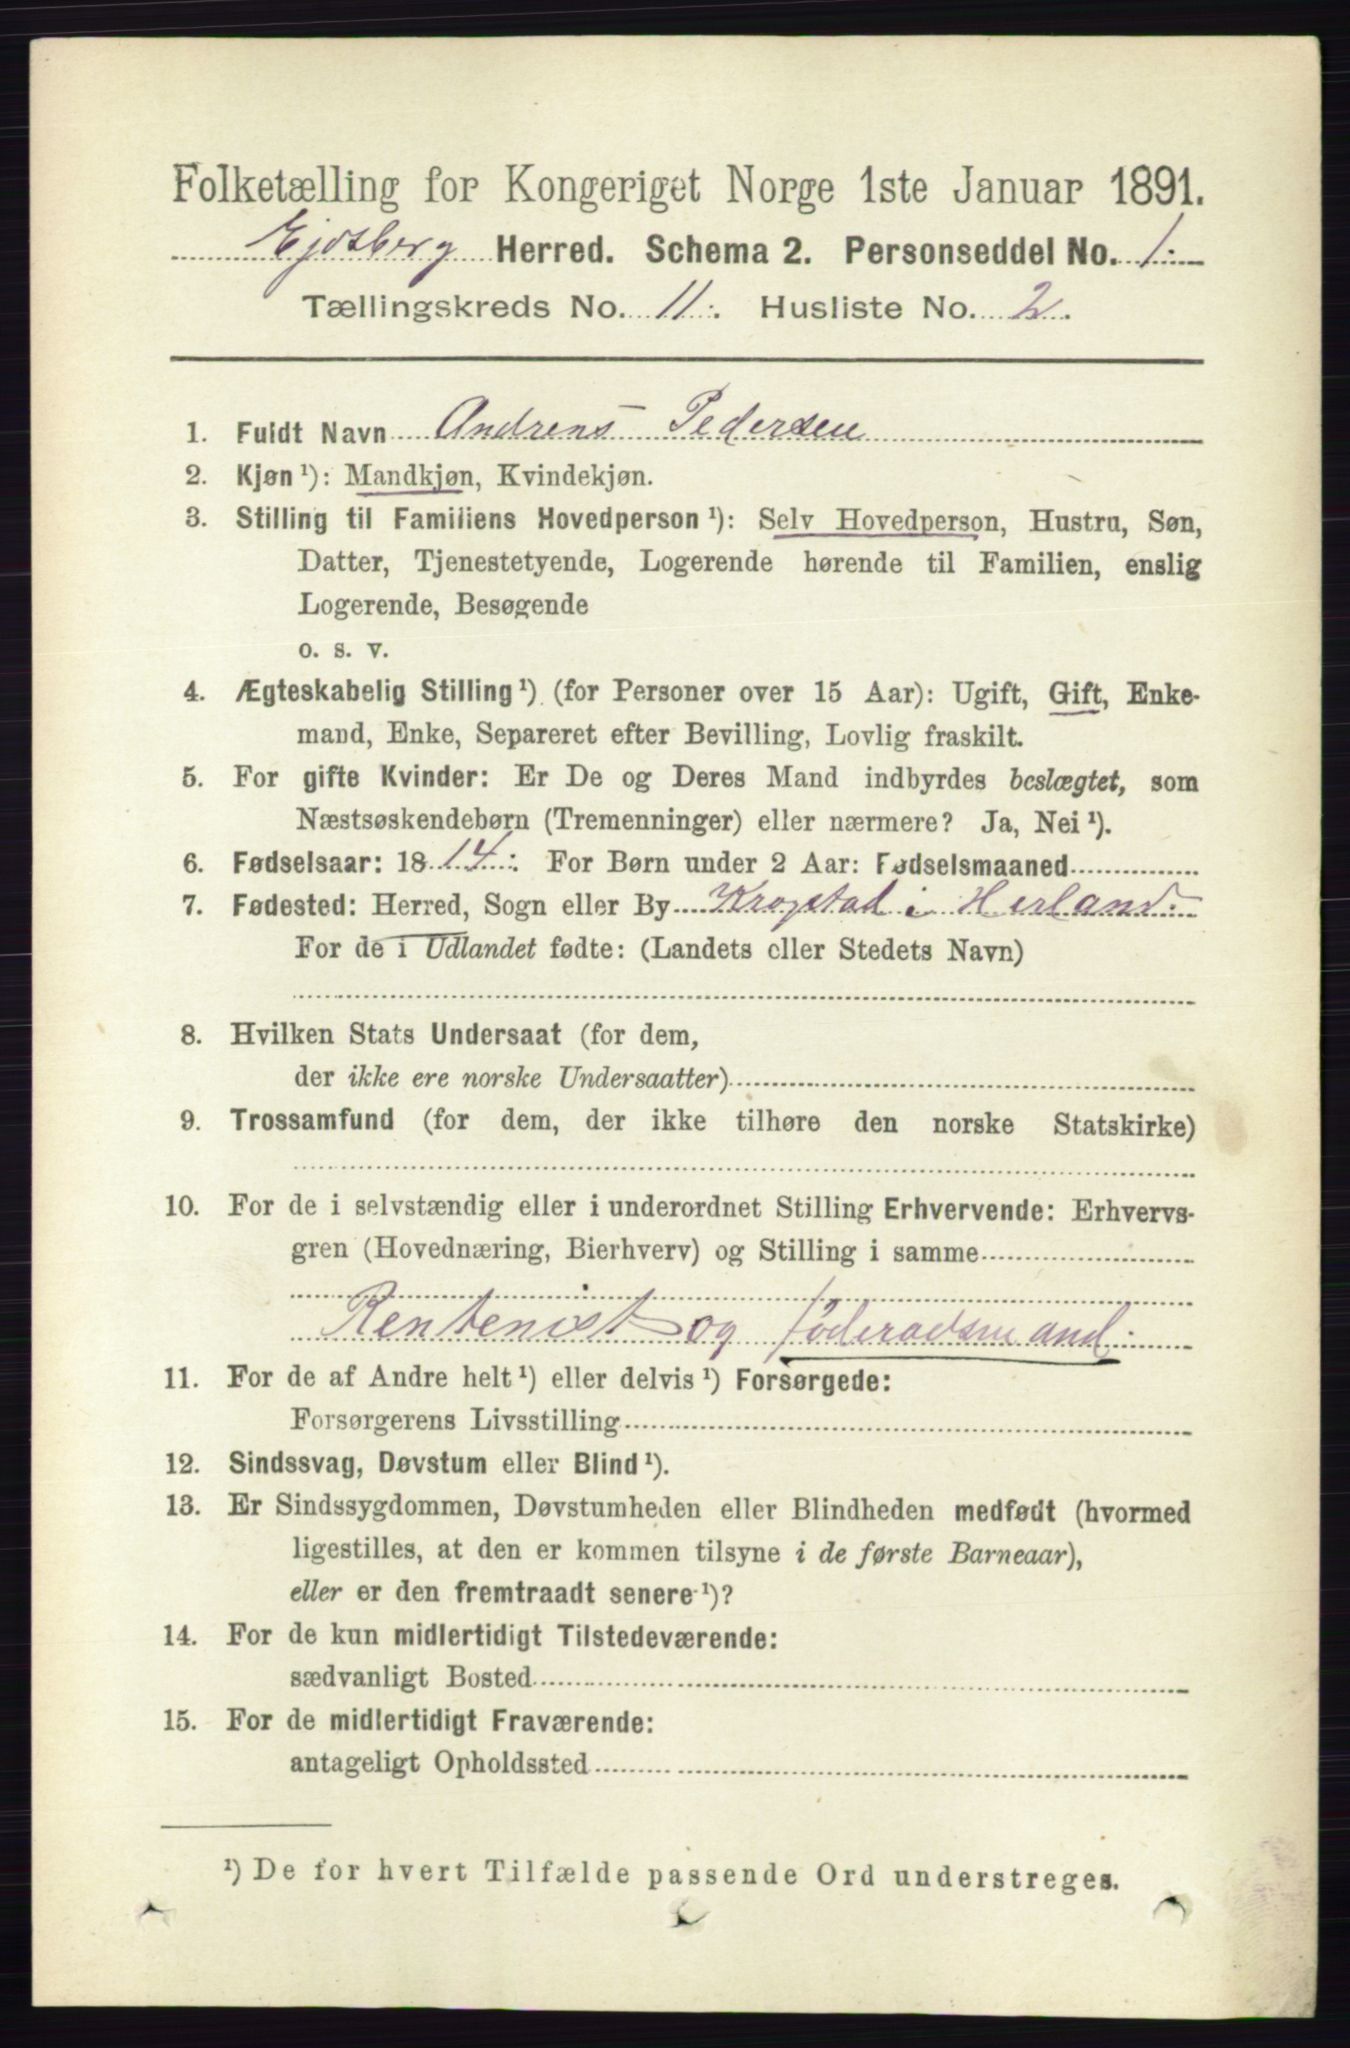 Folketælling for Kongeriget Norge 1ste Januar 1891.
Ejdsberg Herred. Schema 2. Personseddel No. 1.
Tællingskreds No. 11. Husliste No. 2.
1. Fuldt Navn Andreas Pedersen
2. Kjøn¹): Mandkjøn, Kvindekjøn.
3. Stilling til Familiens Hovedperson¹): Selv Hovedperson, Hustru, Søn,
Datter, Tjenestetyende, Logerende hørende til Familien, enslig
Logerende, Besøgende
o. s. v.
4. Ægteskabelig Stilling¹) (for Personer over 15 Aar): Ugift, Gift, Enke-
mand, Enke, Separeret efter Bevilling, Lovlig fraskilt.
5. For gifte Kvinder: Er De og Deres Mand indbyrdes beslægtet, som
Næstsøskendebørn (Tremenninger) eller nærmere? Ja, Nei¹).
6. Fødselsaar: 1814. For Børn under 2 Aar: Fødselsmaaned
7. Fødested: Herred, Sogn eller By Krogstad i Herland.
For de i Udlandet fødte: (Landets eller Stedets Navn)
8. Hvilken Stats Undersaat (for dem,
der ikke ere norske Undersaatter)
9. Trossamfund (for dem, der ikke tilhøre den norske Statskirke)
10. For de i selvstændig eller i underordnet Stilling Erhvervende: Erhvervs-
gren (Hovednæring, Bierhverv) og Stilling i samme
Rentenist ogføderaadsmand.
11. For de af Andre helt¹) eller delvis¹) Forsørgede:
Forsørgerens Livsstilling
12. Sindssvag, Døvstum eller Blind¹).
13. Er Sindssygdommen, Døvstumheden eller Blindheden medfødt (hvormed
ligestilles, at den er kommen tilsyne i de første Barneaar),
eller er den fremtraadt senere¹)?
14. For de kun midlertidigt Tilstedeværende:
sædvanligt Bosted
15. For de midlertidigt Fraværende:
antageligt Opholdssted
¹) De for hvert Tilfælde passende Ord understreges.